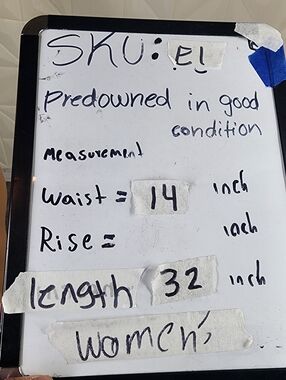 SKU: E!
Predowned in good
condition
Measurement
Waist = 14 inch
Rise = inch
length 32 inch
women's